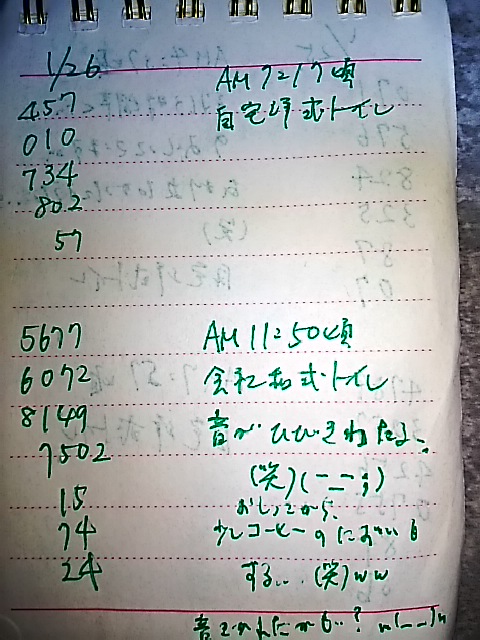 1/26
457 AM7:17頃
010 自宅洋式トイレ
734
802
57
5677 AM11:50頃
6072 会社和式トイレ
8149 音がひびきわたる、
7502 (笑)(ーー;)
15 おしっこから、
74 少しコーヒーのにおいも
24 する... (笑)ww